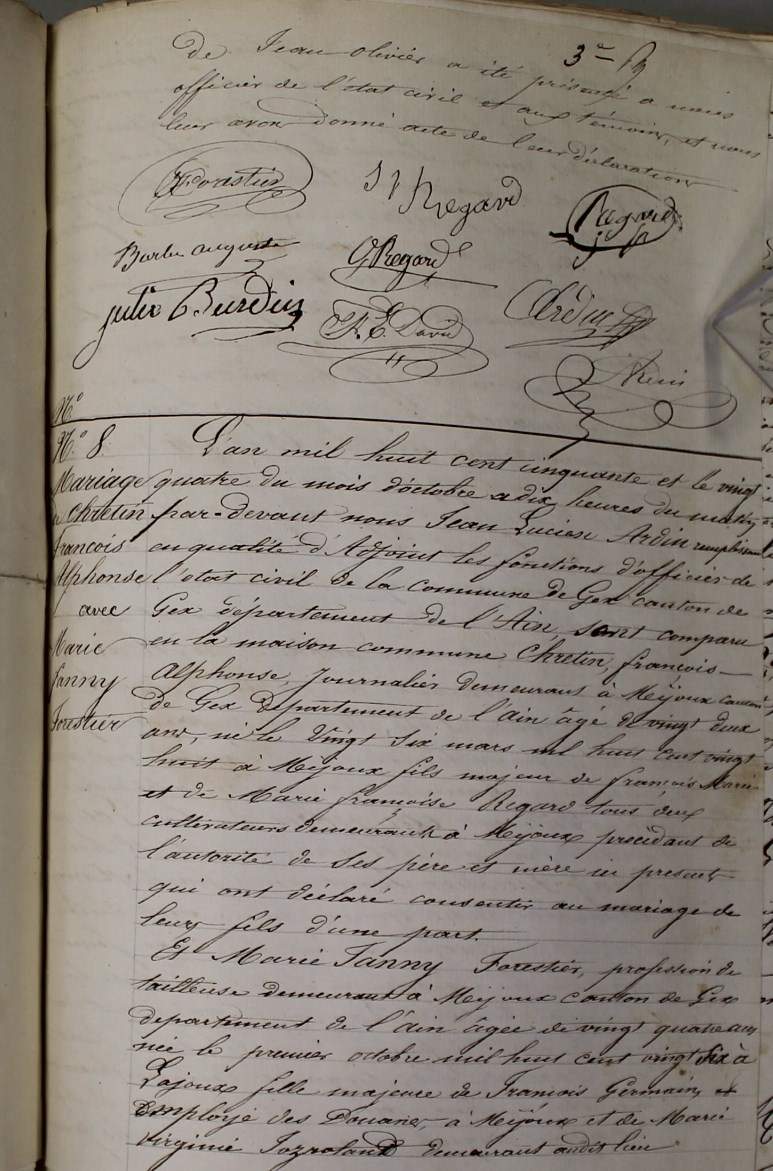 3me
de Jean olivier a été présenté a nous
officier de l'état civil et aux témoins, et nous
leur avon donné acte de leur déclaration
Forestier
Regard
Regard
Burdin auguste
G Regard
julie Burdin
David
Ardin
N°
N° 8.
Mariage
Chretin
François
Alphonse
avec
Marie
fanny
Forestier
L'an mil huit cent cinquante et le vingt
quatre du mois d'octobre a dix heures du matin
par-devant nous Jean Lucien Ardin remplissant
en qualité d'Adjoint les fonctions d'officier de
l'etat civil de la commune de Gex canton de
Gex département de l'Ain, sont comparu
en la maison commune Chretin, françois-
Alphonse, Journalier demeurant à Mijoux canton
de Gex département de l'ain âgé de vingt deux
ans, né le Vingt Six mars mil huit cent vingt
huit à Mijoux fils majeur de françois Marie
et de Marie françoise Regard tous deux
cultivateurs demeurants à Mijoux procédant de
l'autorité de ses père et mère ici present
qui ont déclaré consentir au mariage de
leur fils d'une part.
Et Marie Fanny Forestier, profession de
tailleuse demeurant à Mijoux canton de Gex
département de l'ain âgée de vingt quatre ans
née le premier octobre mil huit cent vingt Six à
Lajoux fille majeure de François Germain, et
Employé des Douanes, à Mijoux et de Marie
Virginie demeurant audit lieu